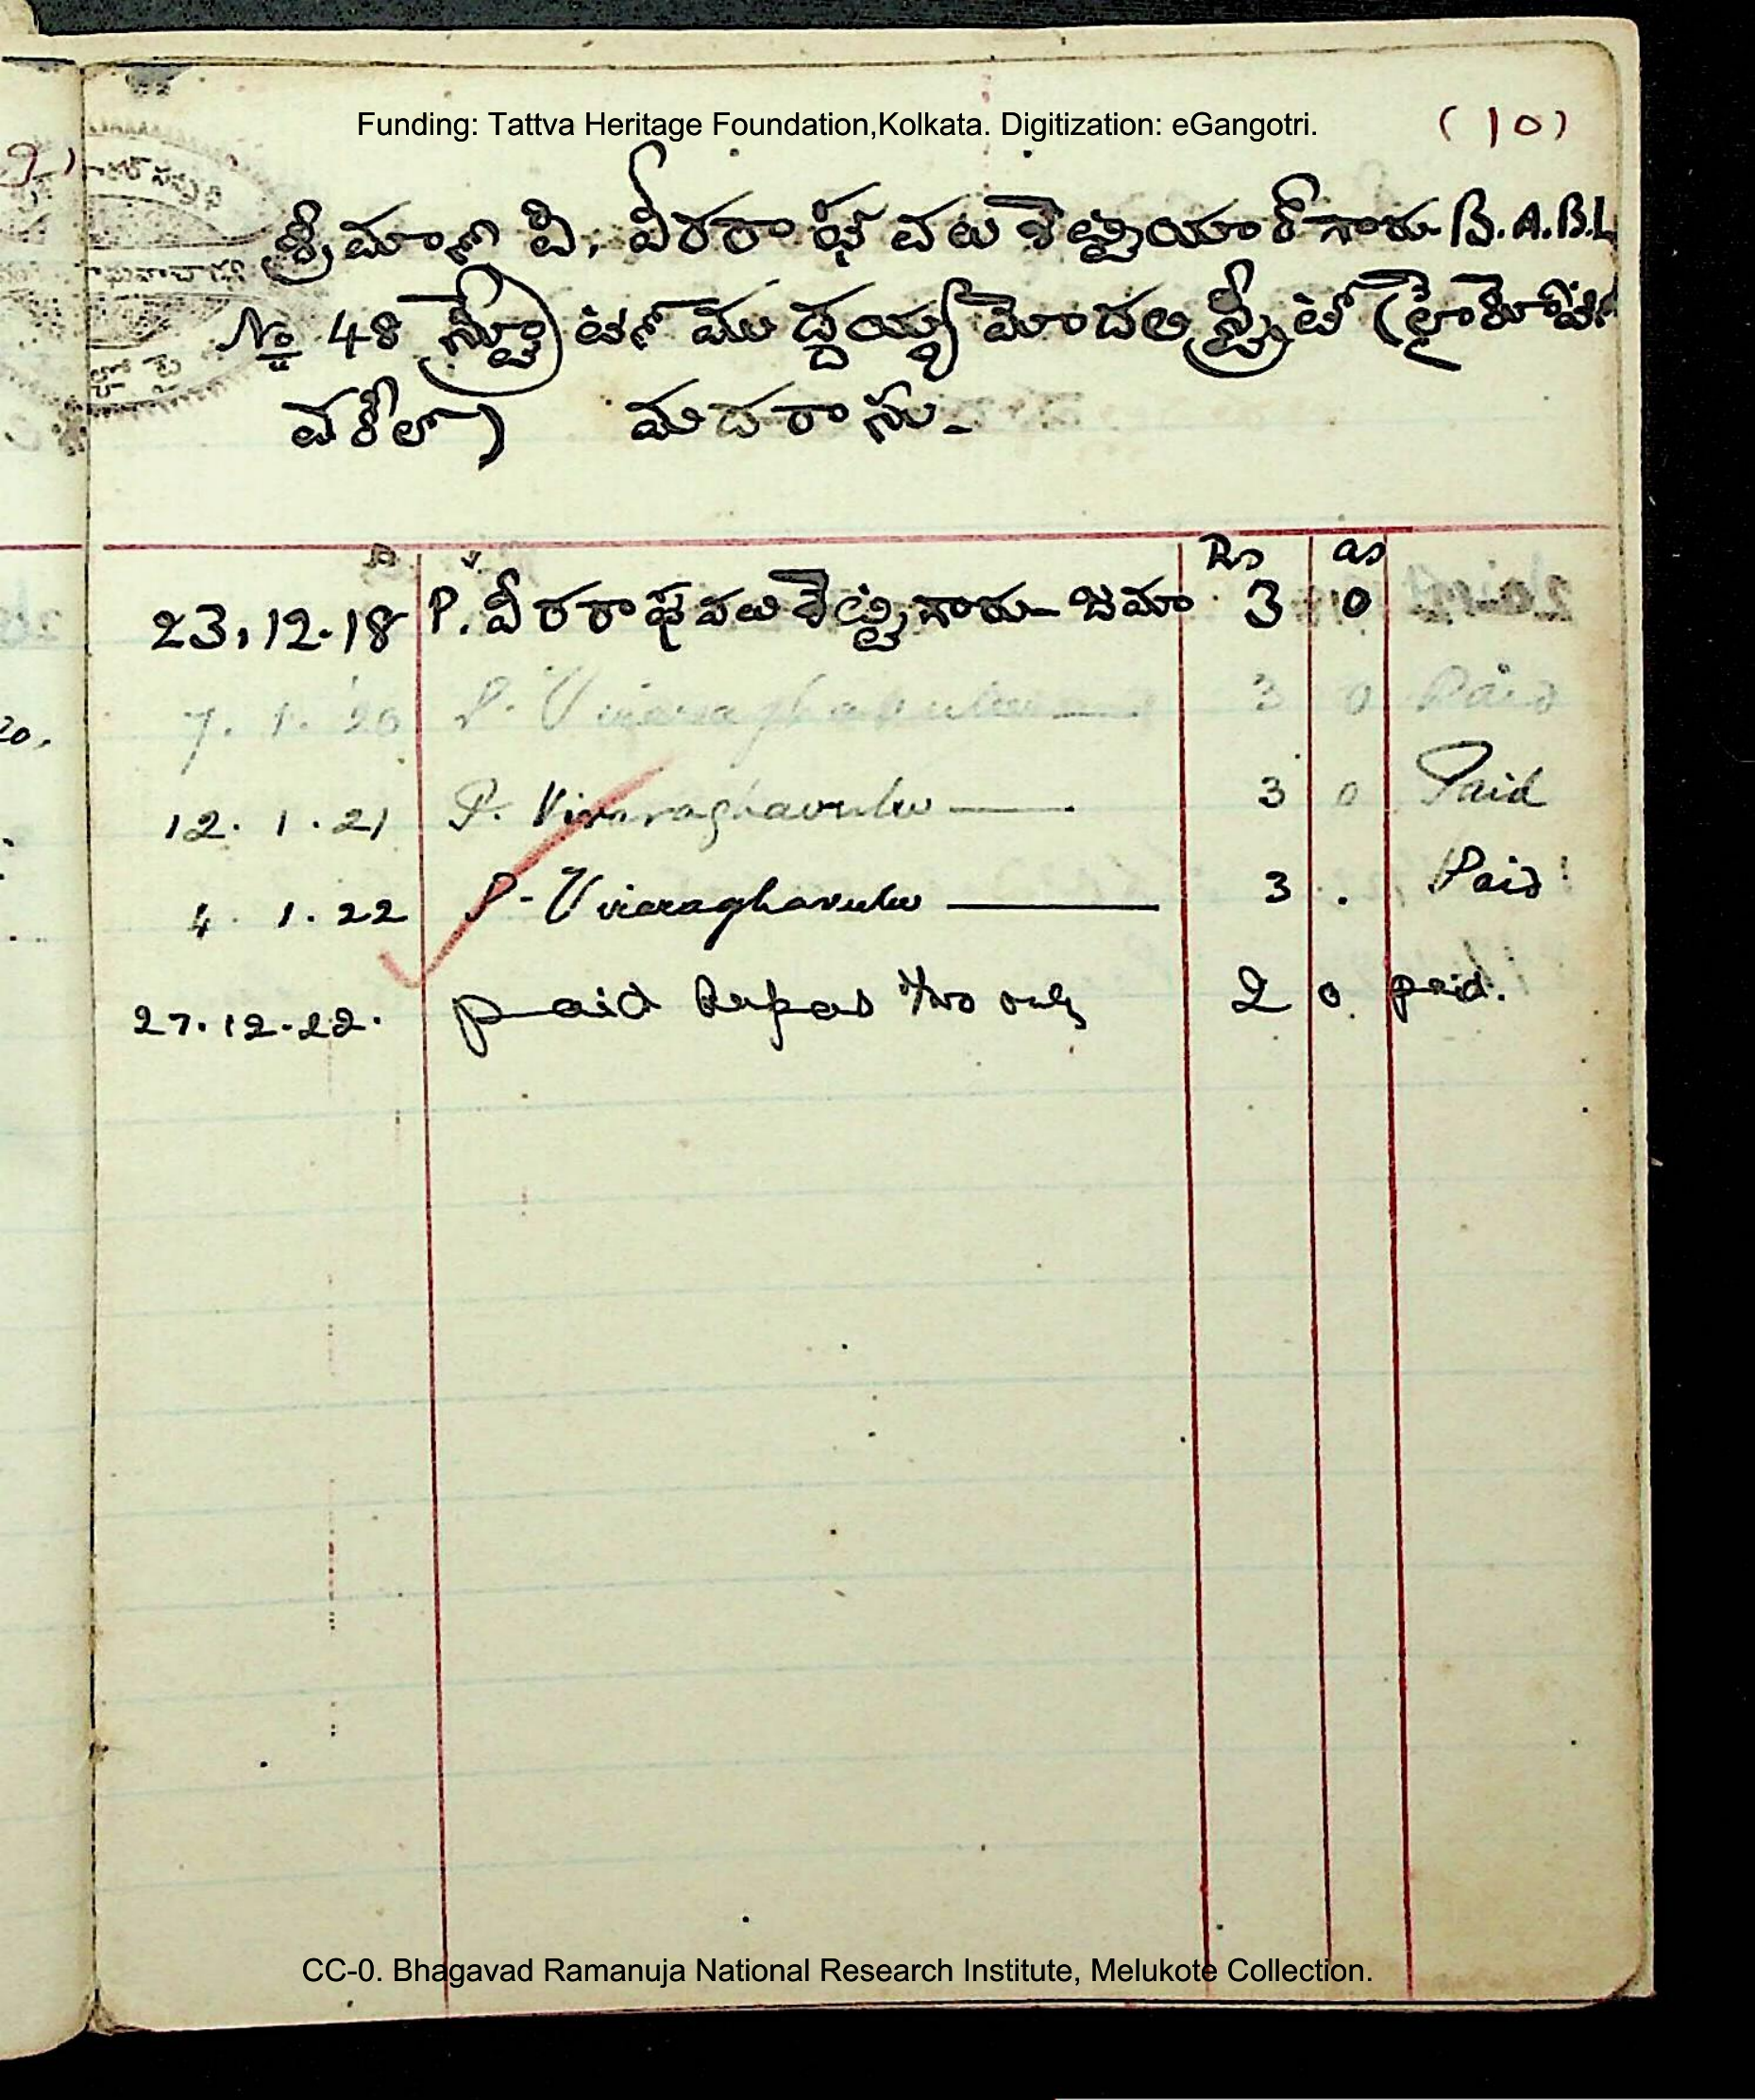 Funding: Tattva Heritage Foundation,Kolkata. Digitization: eGangotri.
(10)
శ్రీమాన్ పి. వీరరాఘవలు శెట్టియార్ గారు B.A.B.L
№ 48 స్ట్రీ ముద్దయ్య మొదలి స్ట్రీట్ (హైకోర్టు
వకీలు) మదరాసు.
Rs as
23.12.18 P. వీరరాఘవలు శెట్టిగారు - జమా 3 0
7. 1. 20 P. Viraraghavulu — 3 0 Paid
12. 1. 21 P. Viraraghavulu — 3 0 Paid
4. 1. 22 P. Viraraghavulu — 3 . Paid
27.12.22. paid Rupees two only 2 0 paid.
CC-0. Bhagavad Ramanuja National Research Institute, Melukote Collection.